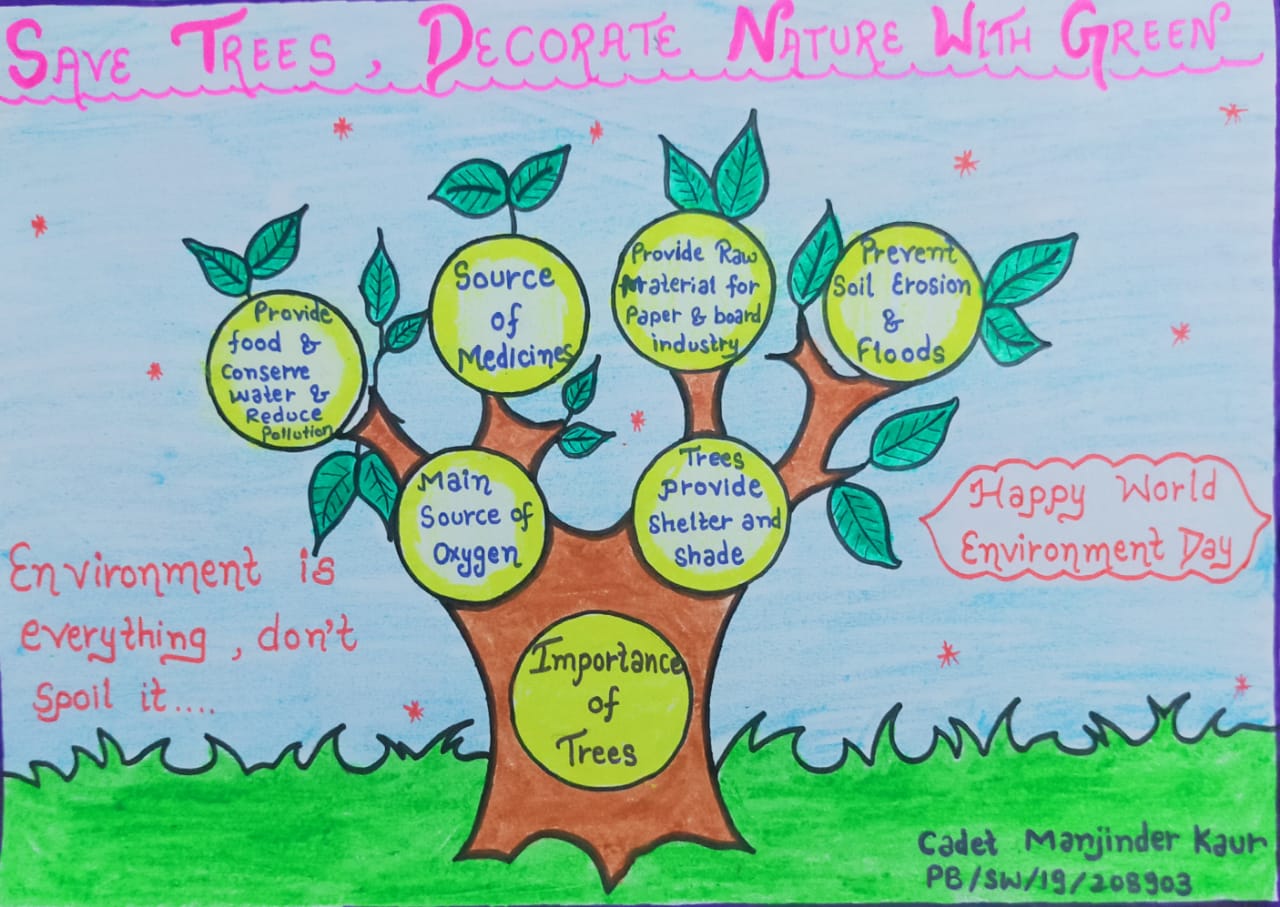 Save Trees, Decorate Nature With Green
Provide
food &
Conserve
water &
Reduce
Pollution
Source
of
Medicines
Provide Raw
Material for
Paper & board
industry
Prevent
Soil Erosion
&
Floods
Main
Source of
Oxygen
Trees
Provide
Shelter and
Shade
Happy World
Environment Day
Environment is
everything, don't
Spoil it....
Importance
of
Trees
Cadet Manjinder Kaur
PB/SW/19/208903